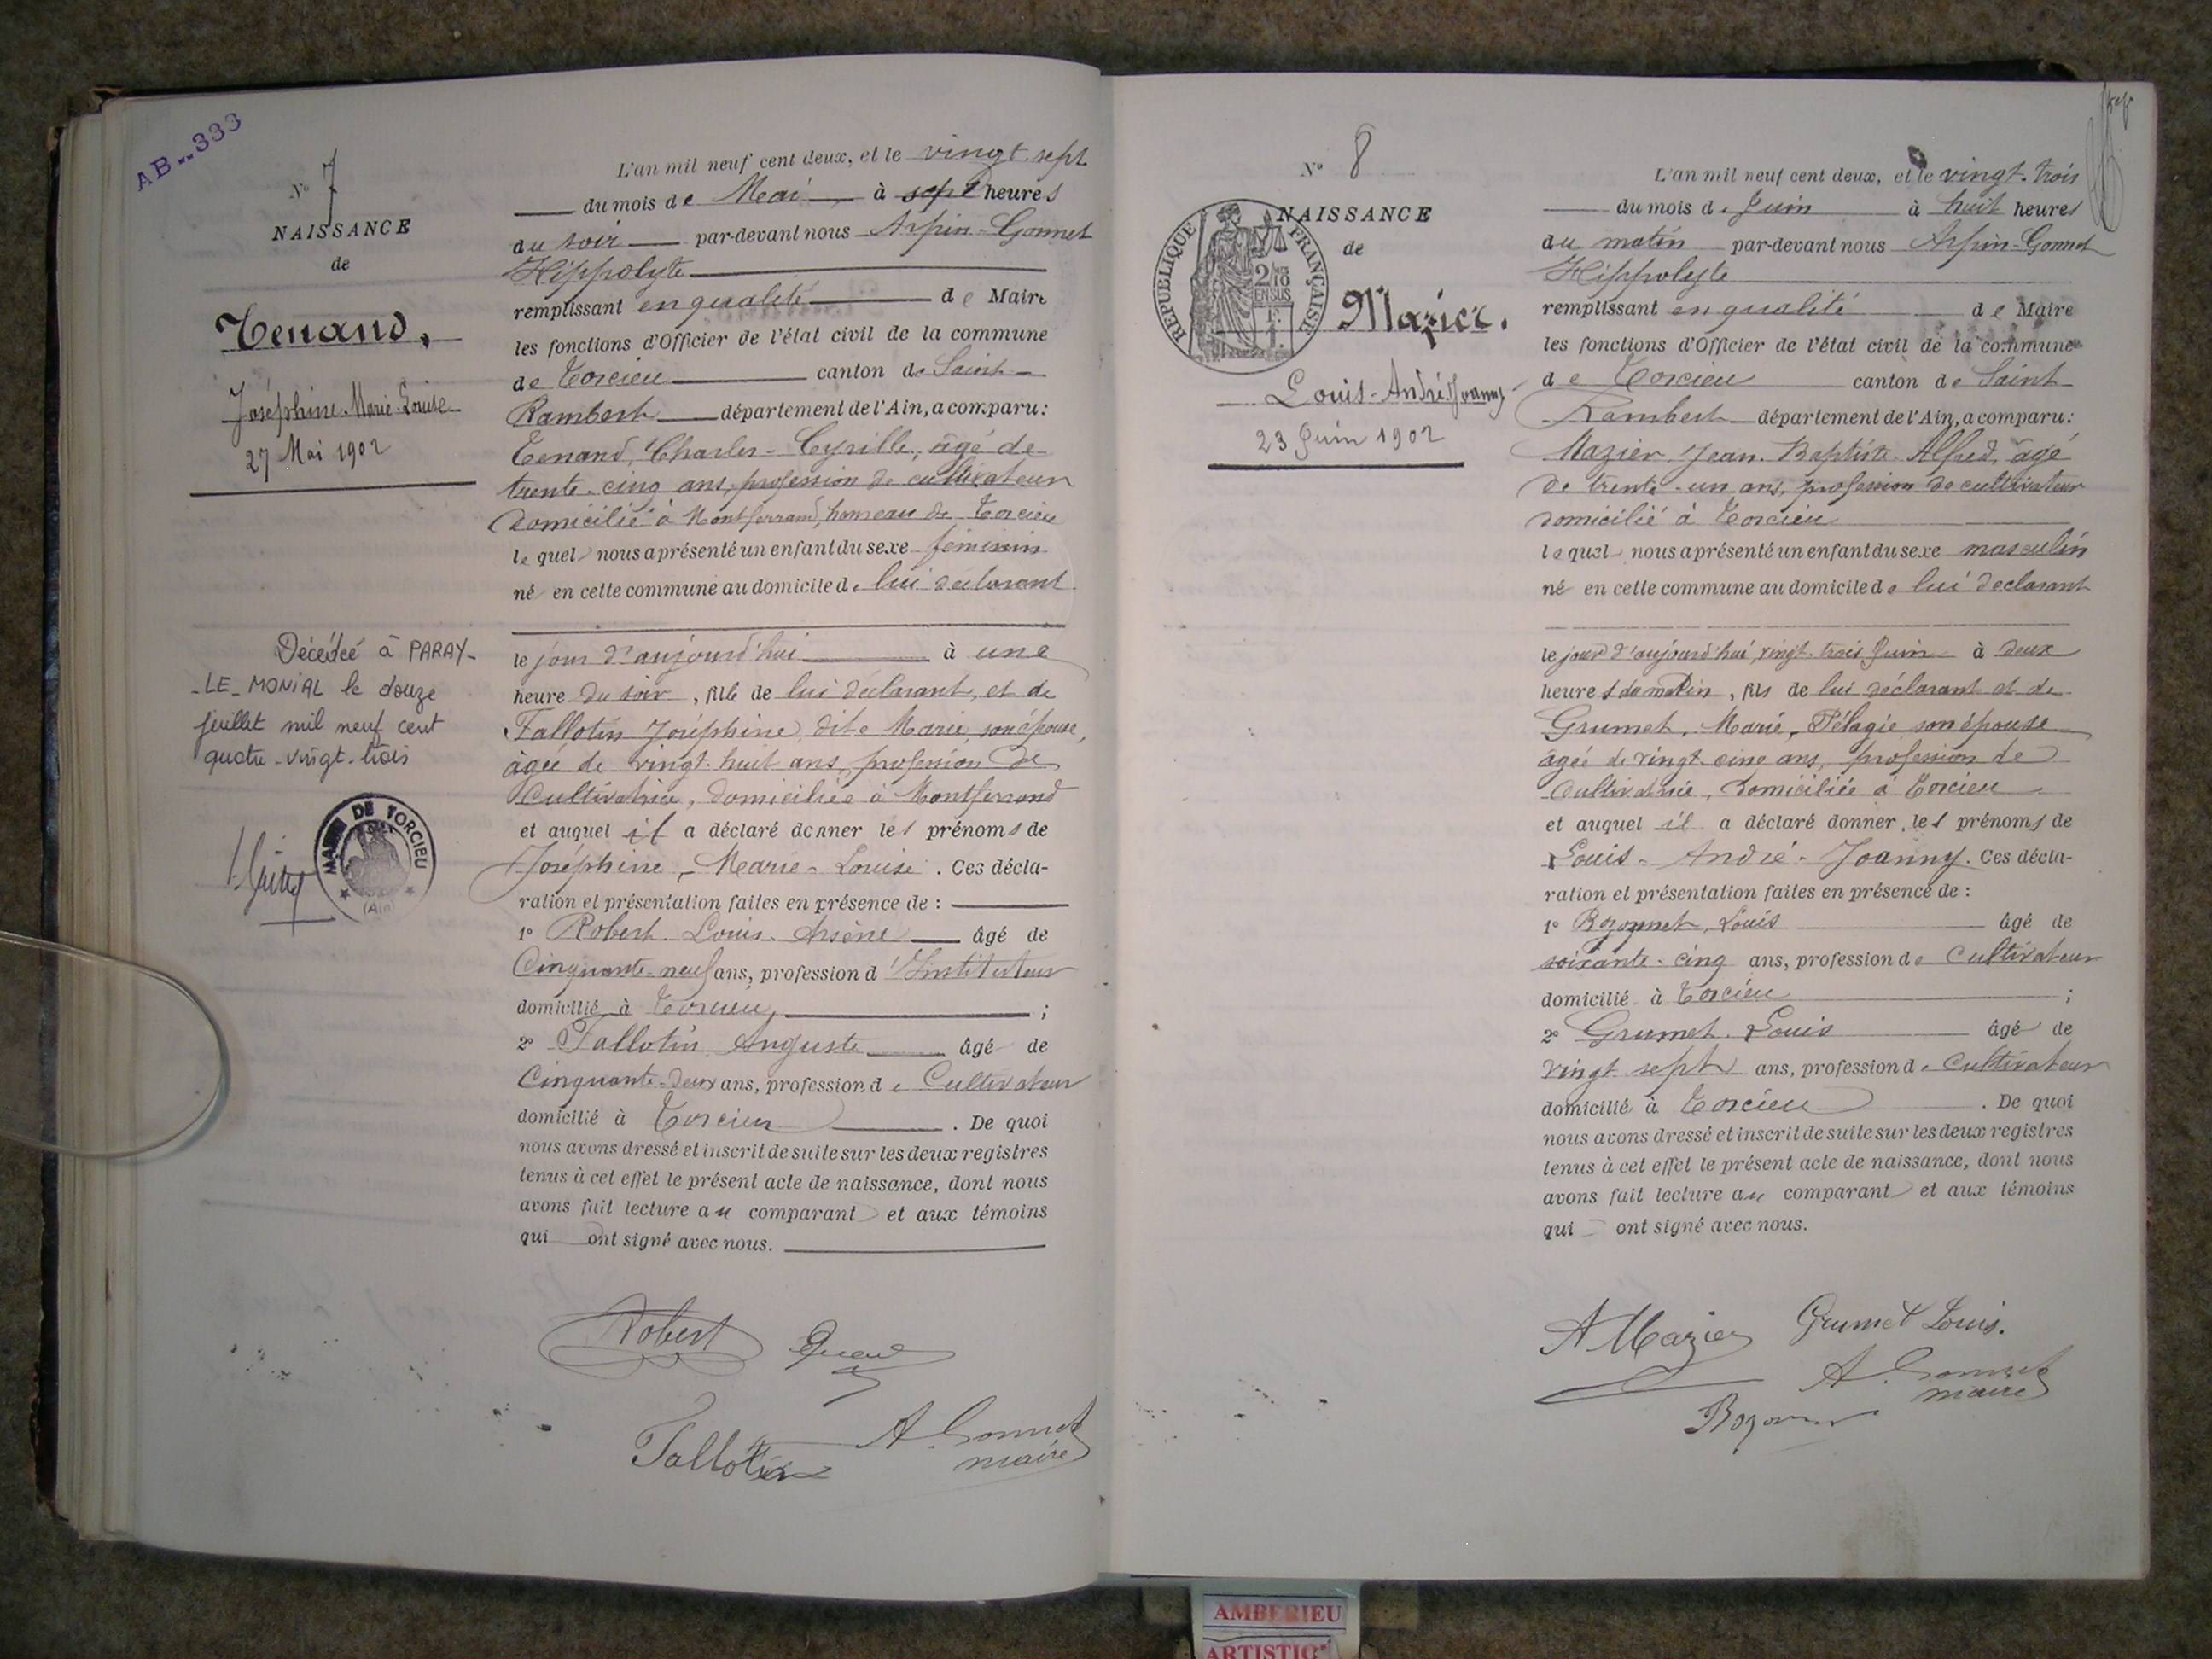 AB..333
N° 7
NAISSANCE
de
Tenand,
Joséphine-Marie-Louise
27 Mai 1902
Décédée à PARAY-
-LE-MONIAL le douze
juillet mil neuf cent
quatre-vingt-trois
MAIRIE DE TORCIEU
(Ain)
L'an mil neuf cent deux, et le vingt sept
du mois de Mai à sept heures
du soir par-devant nous Arpin-Gonnet
Hippolyte
remplissant en qualité de Maire
les fonctions d'Officier de l'état civil de la commune
de Torcieu canton de Saint-
Rambert département de l'Ain, a comparu:
Tenand, Charles-Cyrille, âgé de
trente-cinq ans, profession de cultivateur
domicilié à Montferrand, hameau de Torcieu
lequel nous a présenté un enfant du sexe féminin
né en cette commune au domicile de lui déclarant
le jour d'aujourd'hui à une
heure du soir, fille de lui déclarant, et de
Tallotin Joséphine dite Marie, son épouse,
âgée de vingt-huit ans, profession de
Cultivatrice, domiciliée à Montferrand
et auquel il a déclaré donner les prénoms de
Joséphine-Marie-Louise. Ces décla-
ration et présentation faites en présence de :
1° Robert Louis-Arsène âgé de
Cinquante-neuf ans, profession d'Instituteur
domicilié à Torcieu, ;
2° Tallotin Auguste âgé de
Cinquante-deux ans, profession de Cultivateur
domicilié à Torcieu . De quoi
nous avons dressé et inscrit de suite sur les deux registres
tenus à cet effet le présent acte de naissance, dont nous
avons fait lecture au comparant et aux témoins
qui ont signé avec nous.
Robert
Tallotin A. Gonnet
maire
N° 8
NAISSANCE
de
REPUBLIQUE FRANÇAISE
2/10
EN SUS
Mazier.
Louis-André-Joanny
23 Juin 1902
L'an mil neuf cent deux, et le vingt-trois
du mois de Juin à huit heures
du matin par-devant nous Arpin-Gonnet
Hippolyte
remplissant en qualité de Maire
les fonctions d'Officier de l'état civil de la commune
de Torcieu canton de Saint-
Rambert département de l'Ain, a comparu:
Mazier Jean-Baptiste-Alfred, âgé
de trente-un ans, profession de cultivateur
domicilié à Torcieu
lequel nous a présenté un enfant du sexe masculin
né en cette commune au domicile de lui declarant
le jour d'aujourd'hui, vingt-trois Juin à deux
heures du matin, fils de lui déclarant et de
Grumet, Marie, Pélagie son épouse
âgée de vingt-cinq ans, profession de
Cultivatrice, domiciliée à Torcieu
et auquel il a déclaré donner, les prénoms de
Louis-André-Joanny. Ces décla-
ration et présentation faites en présence de :
1° Bozonnet, Louis âgé de
soixante-cinq ans, profession de Cultivateur
domicilié à Torcieu ;
2° Grumet Louis âgé de
vingt sept ans, profession de Cultivateur
domicilié à Torcieu . De quoi
nous avons dressé et inscrit de suite sur les deux registres
tenus à cet effet le présent acte de naissance, dont nous
avons fait lecture au comparant et aux témoins
qui ont signé avec nous.
A Mazier Grumet Louis.
A. Gonnet
maire
AMBERIEU
ARTISTIQ